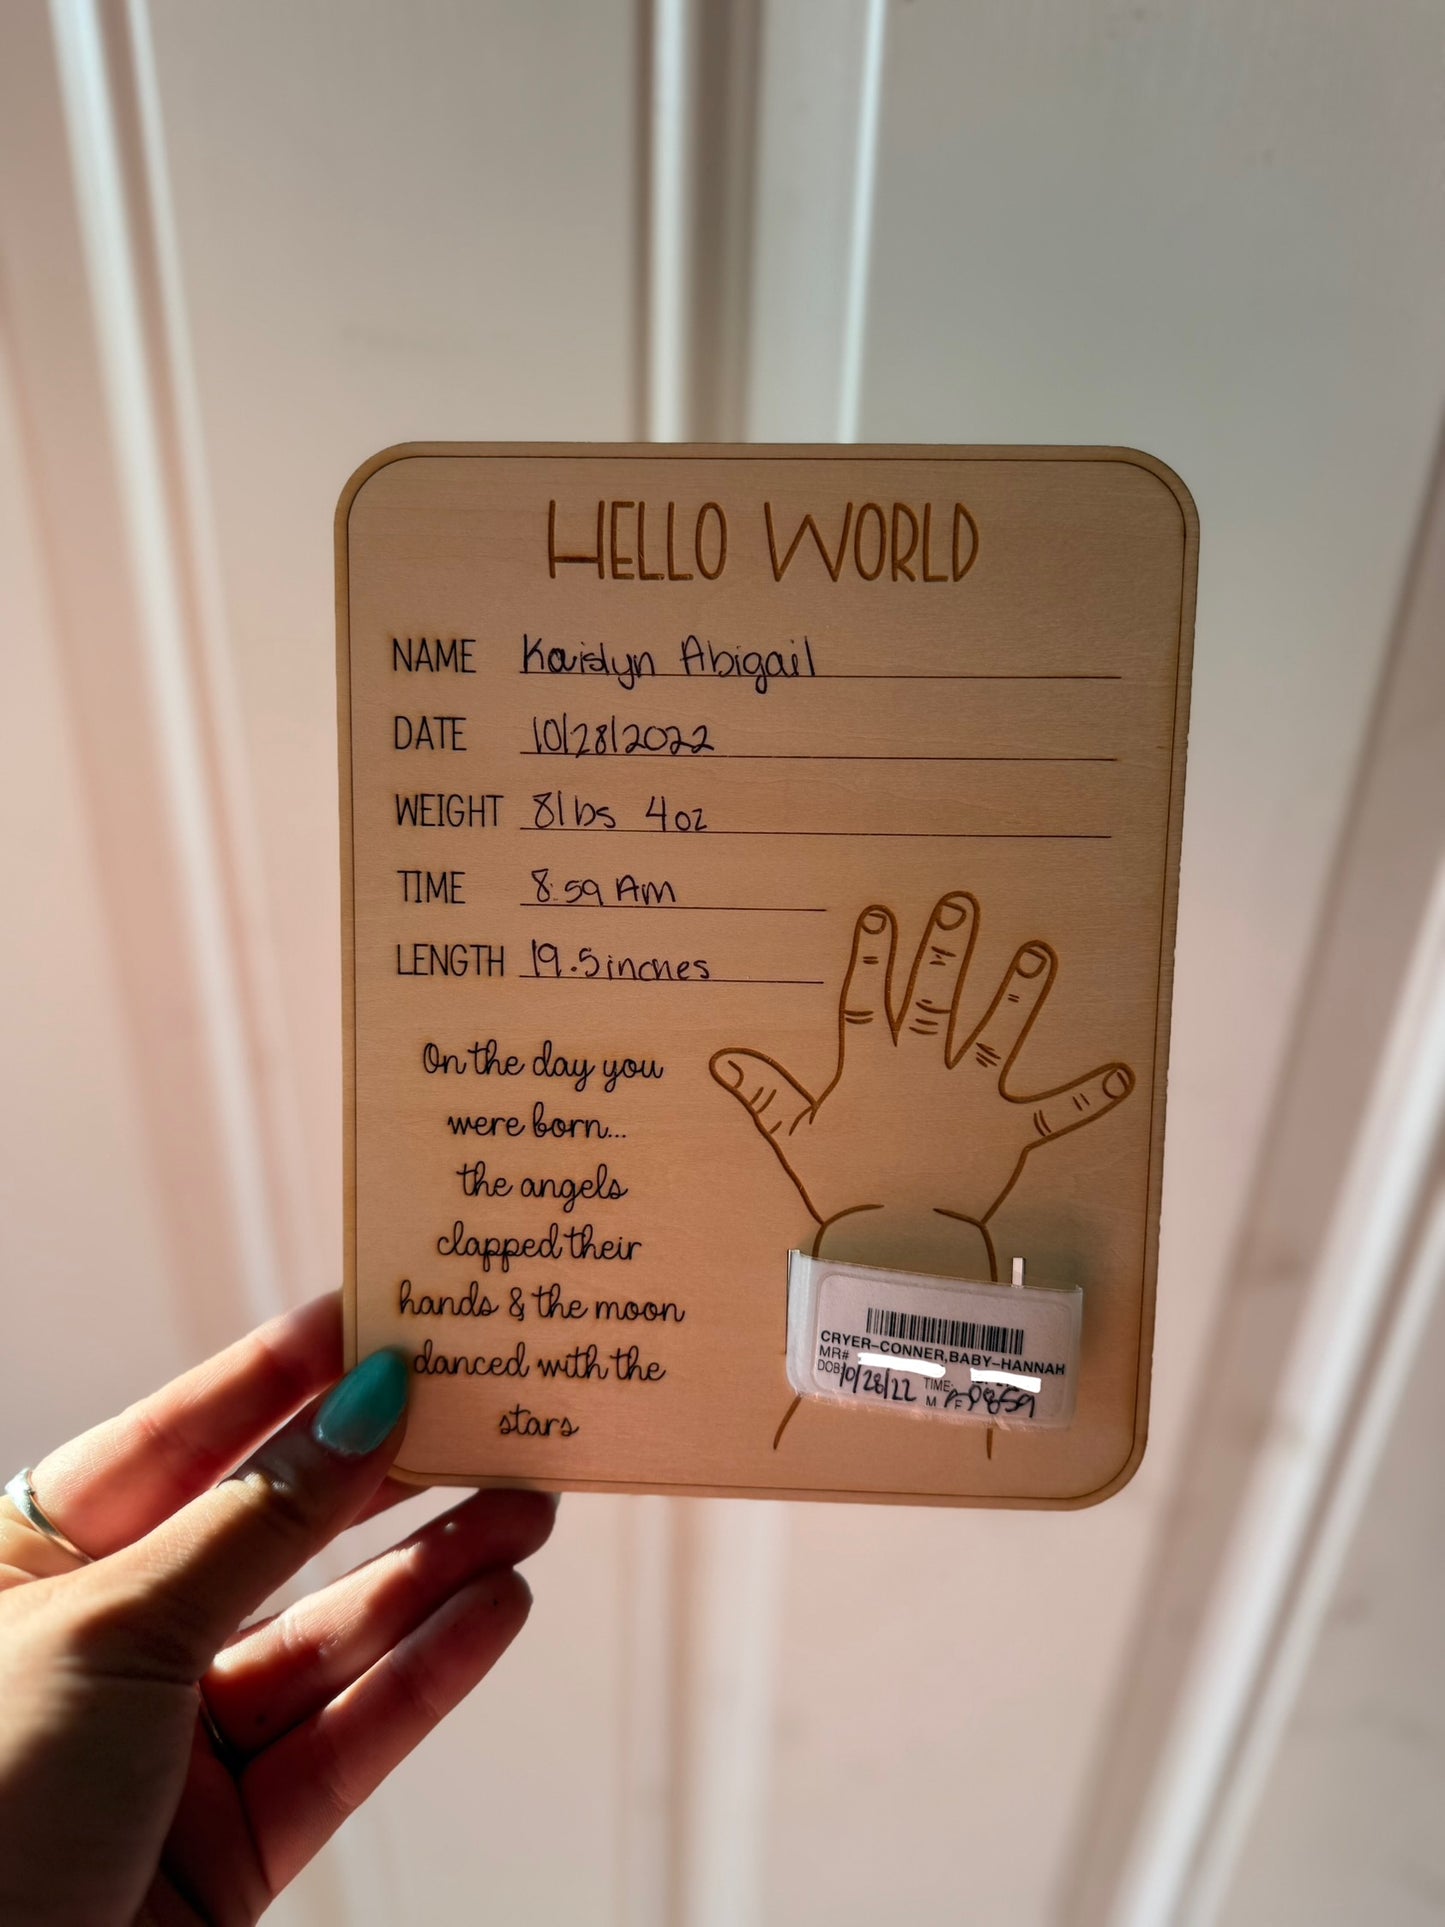 HELLO WORLD
NAME Kaislyn Abigail
DATE 10/28/2022
WEIGHT 8lbs 4oz
TIME 8:59 AM
LENGTH 19.5 inches
On the day you
were born...
the angels
clapped their
hands & the moon
danced with the
stars
CRYER-CONNER,BABY-HANNAH
MR#
DOB 10/28/22 TIME: 0859
M F